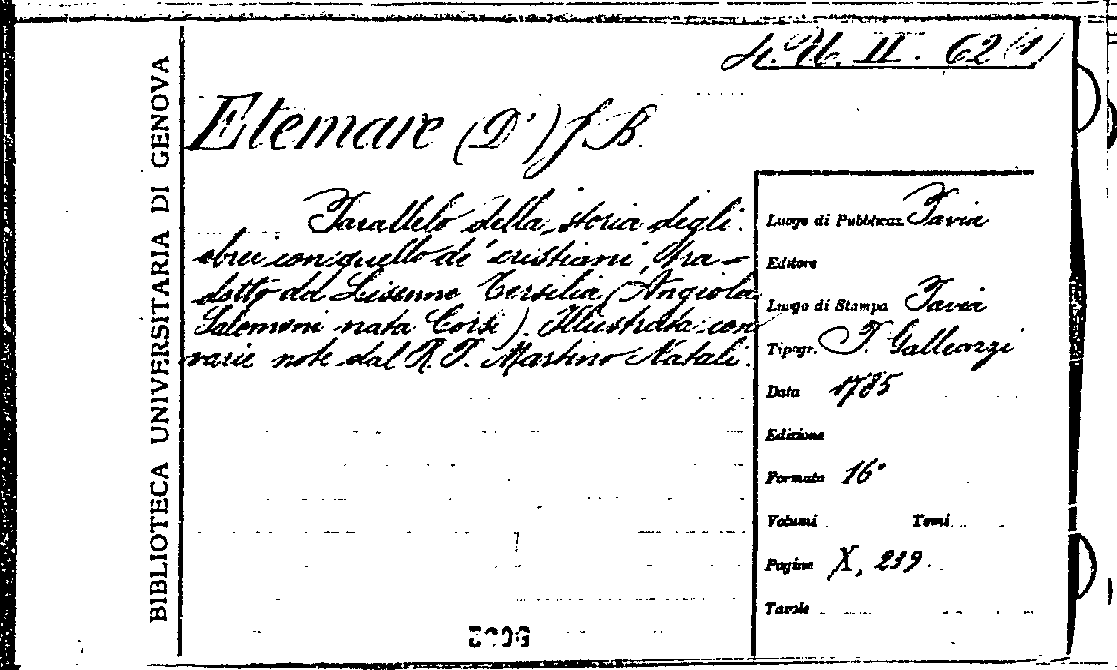 BIBLIOTECA UNIVERSITARIA DI GENOVA
62(1)
Etemare (D') J. B.
Parallelo della storia degli
ebrei con quello de' cristiani, Tra-
dotto da Lisenno Tersilia (Angiola
Salomoni nata Corsi). Illustrata con
varie note dal R. P. Martino Natali.
Luogo di Pubblicaz. Pavia
Editore
Luogo di Stampa Pavia
Tipogr. P. Galleazzi
Data 1785
Edizione
Formato 16°
Volumi Tomi
Pagine X, 239.
Tavole